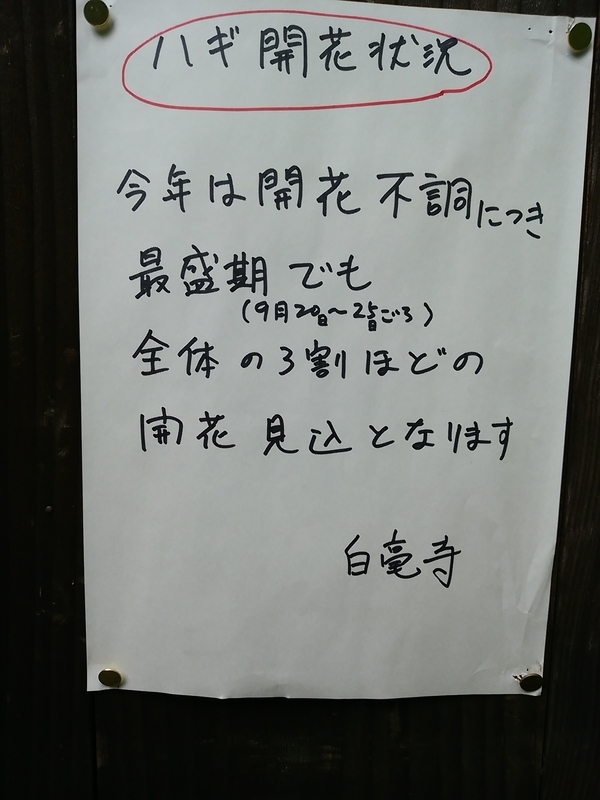 ハギ開花状況
今年は開花不調につき
最盛期でも
(9月20日~25日ごろ)
全体の3割ほどの
開花見込となります
白毫寺